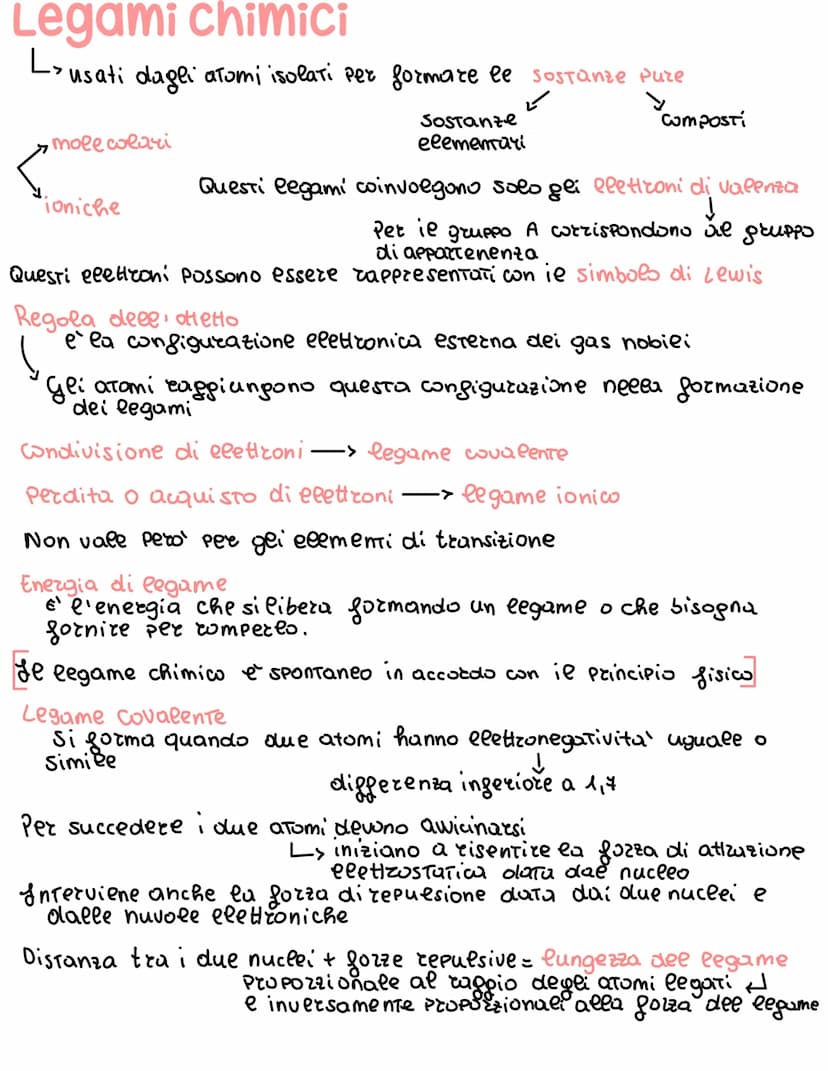 Legami chimici
↳ usati dagli atomi isolati per formare le sostanze pure
sostanze elementari
composti
molecolari
ioniche
Questi legami coinvolgono solo gli elettroni di valenza
Per il gruppo A corrispondono al gruppo
di appartenenza
Questi elettroni possono essere rappresentati con il simbolo di Lewis
Regola dell'ottetto
è la configurazione elettronica esterna dei gas nobili
Gli atomi raggiungono questa configurazione nella formazione
dei legami
Condivisione di elettroni → legame covalente
Perdita o acquisto di elettroni → legame ionico
Non vale però per gli elementi di transizione
Energia di legame
È l'energia che si libera formando un legame o che bisogna
fornire per romperlo.
[Il legame chimico è spontaneo in accordo con il principio fisico]
Legame covalente
Si forma quando due atomi hanno elettronegatività uguale o
simile
differenza inferiore a 1,7
Per succedere i due atomi devono avvicinarsi
↳ iniziano a risentire la forza di attrazione
elettrostatica data dal nucleo
Interviene anche la forza di repulsione data dai due nuclei e
dalle nuvole elettroniche
Distanza tra i due nuclei + forze repulsive = lungezza del legame
Proporzionale al raggio degli atomi legati ↵
e inversamente proporzionali alla forza del legame